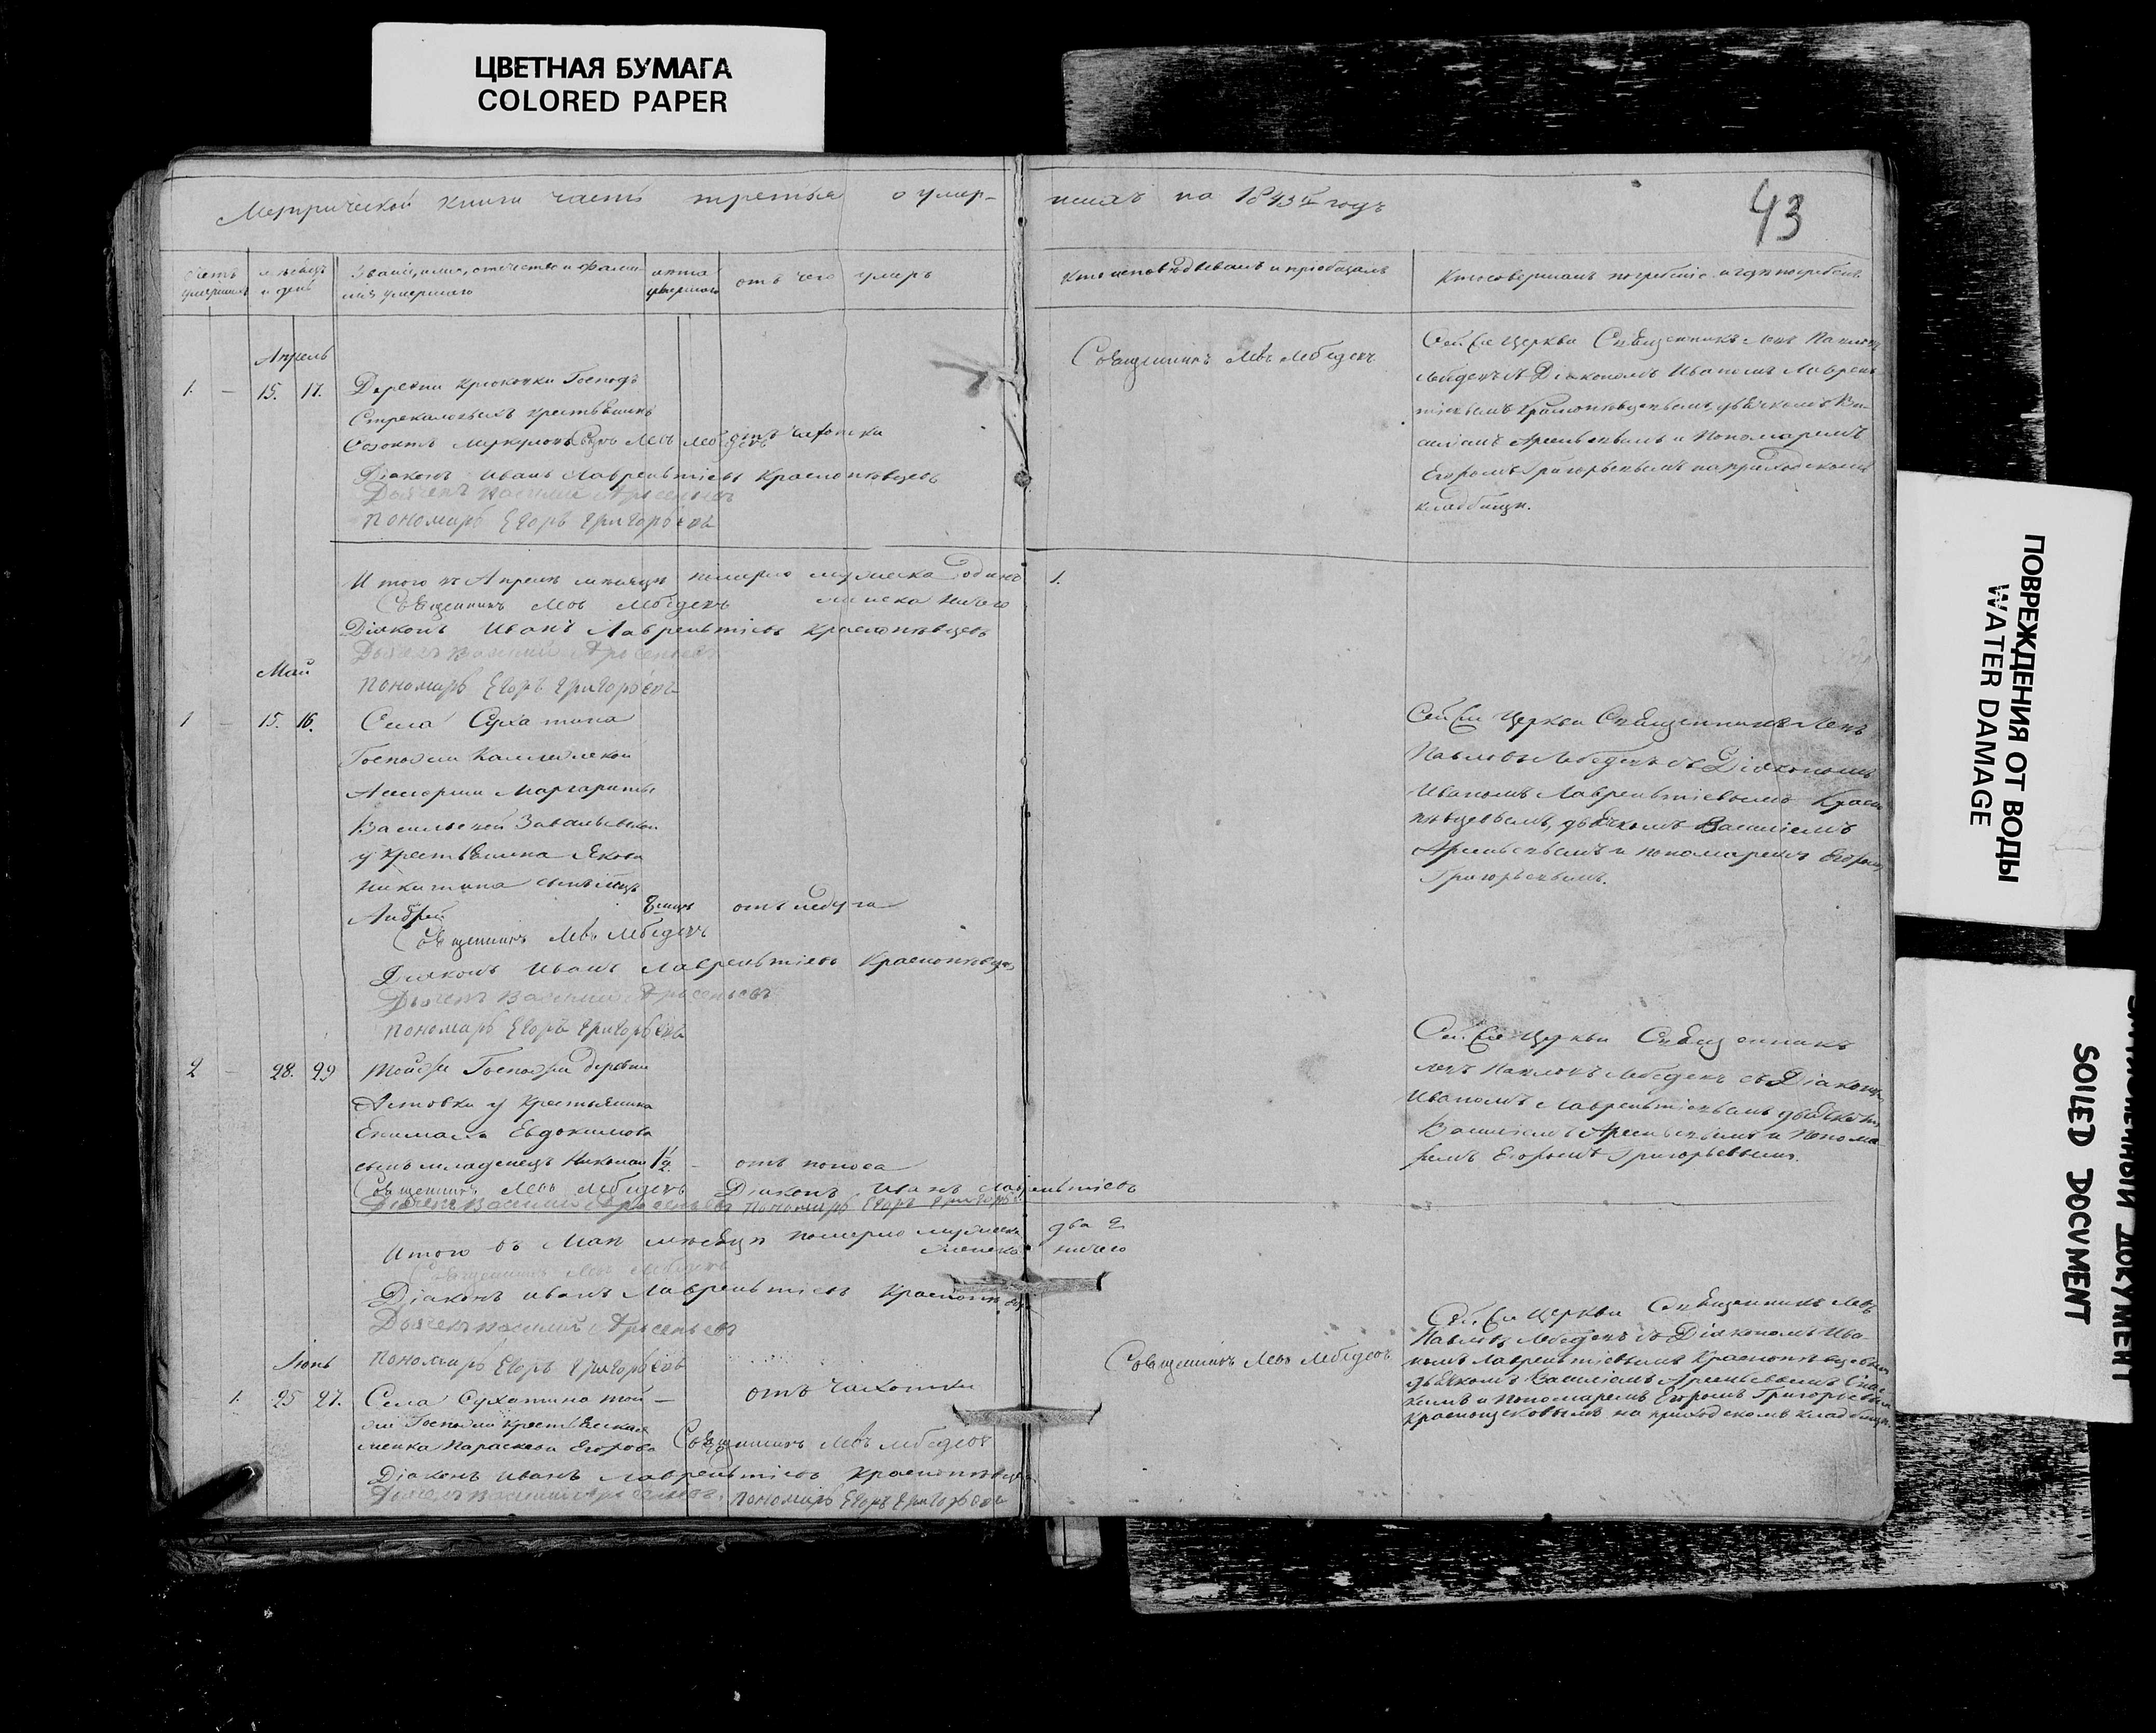 ЦВЕТНАЯ БУМАГА
COLORED PAPER
Метрической книги часть третья о умер-
шихъ на 1843й годъ
43
Счетъ умершихъ
мѣсяцъ и день
Званіе, имя, отечество и фамилія умершаго
лѣта умершаго
отъ чего умеръ
Кто исповѣдывалъ и пріобщалъ
Кто совершалъ погребеніе и гдѣ погребенъ
Апрель
1. — 15. 17. Деревни Крюковки Господъ
Стрекаловыхъ крестьянинъ
Меркуловъ
отъ чахотки
Діаконъ Иванъ Лаврентіевъ Краснопѣвцевъ
Дьячекъ Василій Арсеньевъ
Пономарь Егоръ Григорьевъ
Священникъ Левъ Лебедевъ
Сей же Церкви Священникъ Левъ Павловъ
Лебедевъ съ Діакономъ Иваномъ Лаврен-
тіевымъ Краснопѣвцевымъ, дьячкомъ Ва-
силіемъ Арсеньевымъ и Пономаремъ
Егоромъ Григорьевымъ на приходскомъ
кладбищѣ.
Итого въ Апрелѣ мѣсяцѣ померло мужеска одинъ 1.
Священникъ Левъ Лебедевъ женска ничего
Діаконъ Иванъ Лаврентіевъ Краснопѣвцевъ
Дьячекъ Василій Арсеньевъ
Пономарь Егоръ Григорьевъ
Май
1 — 15. 16. Села Сухотина
Госпожи Коллежской
Асессорши Маргариты
Васильевой
у крестьянина Якова
Никитина сынъ младенецъ
Андрей
отъ недуга
Священникъ Левъ Лебедевъ
Діаконъ Иванъ Лаврентіевъ Краснопѣвцевъ
Дьячекъ Василій Арсеньевъ
Пономарь Егоръ Григорьевъ
Сей же Церкви Священникъ Левъ
Павловъ Лебедевъ съ Діакономъ
Иваномъ Лаврентіевымъ Красно
пѣвцевымъ, дьячкомъ Василіемъ
Арсеньевымъ и пономаремъ Егоромъ
Григорьевымъ.
2 — 28. 29 Той же Госпожи деревни
у крестьянина
Евдокимова
сынъ младенецъ Николай 1½ — отъ поноса
Священникъ Левъ Лебедевъ Діаконъ Иванъ Лаврентіевъ
Дьячекъ Василій Арсеньевъ Пономарь Егоръ Григорьевъ
Сей же Церкви Священникъ
Левъ Павловъ Лебедевъ съ Діакономъ
Иваномъ Лаврентіевымъ дьячкомъ
Василіемъ Арсеньевымъ и Понома
ремъ Егоромъ Григорьевымъ.
Итого въ Маѣ мѣсяцѣ померло мужеска два 2
женска ничего
Священникъ Левъ Лебедевъ
Діаконъ Иванъ Лаврентіевъ Краснопѣвцевъ
Дьячекъ Василій Арсеньевъ
Пономарь Егоръ Григорьевъ
Іюнь
1. 25 27. Села Сухотина той —
же Госпожи крестьянская
женка Параскева Егорова
отъ чахотки
Священникъ Левъ Лебедевъ
Діаконъ Иванъ Лаврентіевъ Краснопѣвцевъ
Дьячекъ Василій Арсеньевъ, Пономарь Егоръ Григорьевъ
Священникъ Левъ Лебедевъ
Сей же Церкви Священникъ Левъ
Павловъ Лебедевъ съ Діакономъ Ива-
номъ Лаврентіевымъ Краснопѣвцевымъ
дьячкомъ Василіемъ Арсеньевымъ
и Пономаремъ Егоромъ Григорьевымъ
на приходскомъ кладбищѣ.
ПОВРЕЖДЕНИЯ ОТ ВОДЫ
WATER DAMAGE
ДОКУМЕНТ
SOILED DOCUMENT